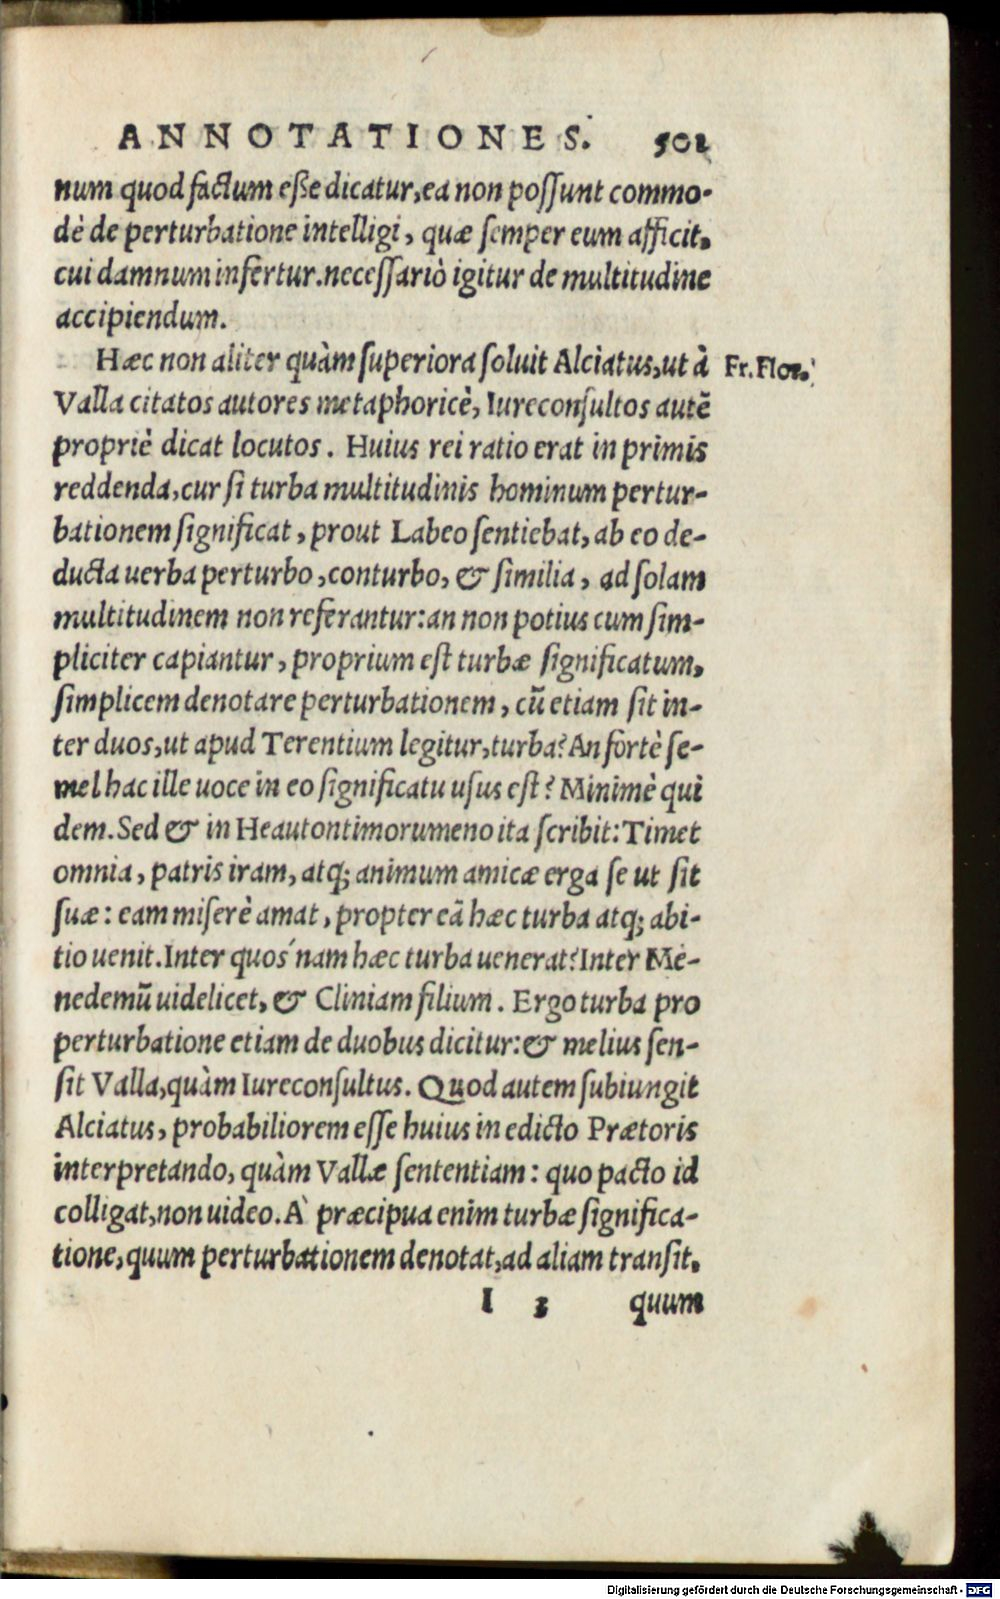 ANNOTATIONES. 501
num quod factum eße dicatur, ea non possunt commo-
dè de perturbatione intelligi, quæ semper eum afficit,
cui damnum infertur. necessariò igitur de multitudine
accipiendum.
Hæc non aliter quàm superiora soluit Alciatus, ut à Fr. Flor.
Valla citatos autores metaphoricè, Iureconsultos autē
propriè dicat locutos. Huius rei ratio erat in primis
reddenda, cur si turba multitudinis hominum pertur-
bationem significat, prout Labeo sentiebat, ab eo de-
ducta uerba perturbo, conturbo, & similia, ad solam
multitudinem non referantur: an non potius cum sim-
pliciter capiantur, proprium est turbæ significatum,
simplicem denotare perturbationem, cū etiam sit in-
ter duos, ut apud Terentium legitur, turba? An fortè se-
mel hac ille uoce in eo significatu usus est? Minimè qui
dem. Sed & in Heautontimorumeno ita scribit: Timet
omnia, patris iram, atq; animum amicæ erga se ut sit
suæ: eam miserè amat, propter eā hæc turba atq; abi-
tio uenit. Inter quos´nam hæc turba uenerat? Inter Me-
nedemū uidelicet, & Cliniam filium. Ergo turba pro
perturbatione etiam de duobus dicitur: & melius sen-
sit Valla, quàm Iureconsultus. Quod autem subiungit
Alciatus, probabiliorem esse huius in edicto Prætoris
interpretando, quàm Vallæ sententiam: quo pacto id
colligat, non uideo. À præcipua enim turbæ significa-
tione, quum perturbationem denotat, ad aliam transit,
I 3 quum
Digitalisierung gefördert durch die Deutsche Forschungsgemeinschaft - DFG